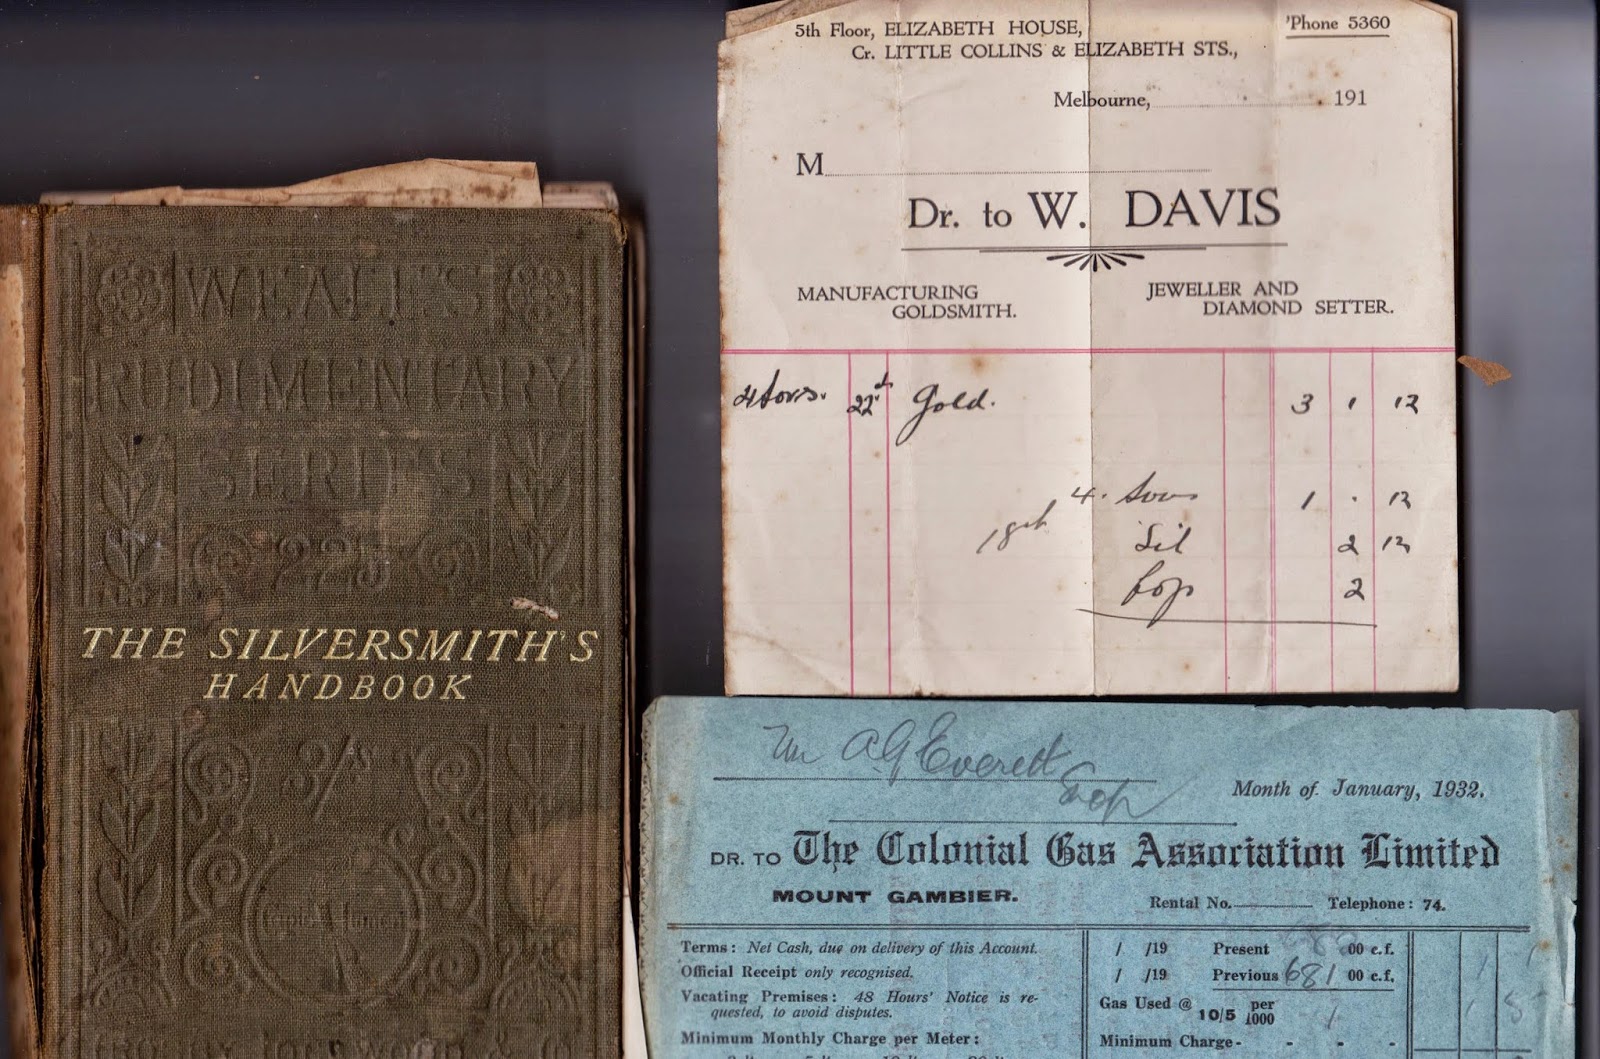 WEALE'S
RUDIMENTARY
SERIES
225
THE SILVERSMITH'S
HANDBOOK
3/
5th Floor, ELIZABETH HOUSE,
Cr. LITTLE COLLINS & ELIZABETH STS.,
'Phone 5360
Melbourne, 191
M
Dr. to W. DAVIS
MANUFACTURING
GOLDSMITH.
JEWELLER AND
DIAMOND SETTER.
4 sovs. 22ct Gold. 3 1 12
4. Sovs 1 . 12
18ct Sil 2 12
Cop 2
Mr A G Everett
Month of January, 1932.
DR. TO The Colonial Gas Association Limited
MOUNT GAMBIER.
Rental No. Telephone: 74.
Terms: Net Cash, due on delivery of this Account.
Official Receipt only recognised.
Vacating Premises: 48 Hours' Notice is re-
quested, to avoid disputes.
Minimum Monthly Charge per Meter:
/ /19 Present 00 c.f.
/ /19 Previous 681 00 c.f.
Gas Used @ 10/5 per 1000 1
Minimum Charge - - - -